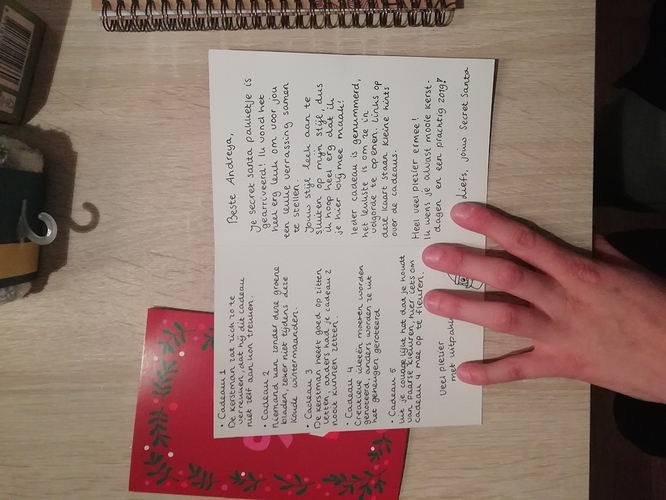 Beste Andreya,
Je secret santa pakketje is
gearriveerd! Ik vond het
heel erg leuk om voor jou
een leuke verrassing samen
te stellen.
Jouw stijl leek aan te
sluiten op mijn stijl, dus
ik hoop heel erg dat ik
je hier blij mee maak!
Ieder cadeau is genummerd,
het leukste is om ze in
volgorde te openen. Links op
deze kaart staan kleine hints
over de cadeaus.
Heel veel plezier ermee!
Ik wens je alvast mooie kerst-
dagen en een prachtig 2019!
Liefs, jouw Secret Santa
• Cadeau 1
De kerstman zat zich zo te
vervelen, dat hij dit cadeau
niet zelf aan kon treuzen.
• Cadeau 2
Niemand kan zonder deze groene
bladen, zeker niet tijdens deze
koude wintermaanden.
• Cadeau 3
De kerstman heeft goed op zitten
letten, anders had je cadeau 2
nooit kunnen zetten.
• Cadeau 4
Creatieve ideeën moeten worden
genoteerd, anders worden ze uit
het geheugen geraceerd
• Cadeau 5
Uit je collage lijkt het dat je houdt
van paarse kleuren, hier iets om
cadeau 4 mee op te fleuren.
Veel plezier
met uitpakk